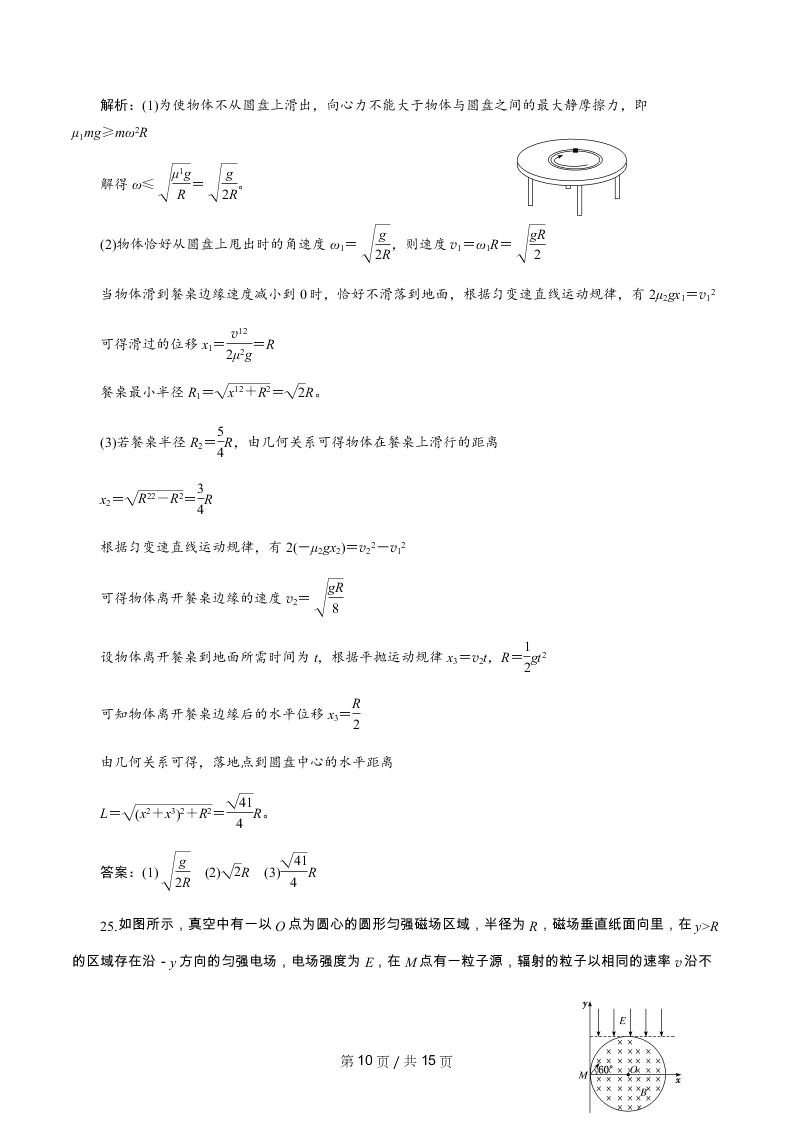 解析：(1)为使物体不从圆盘上滑出，向心力不能大于物体与圆盘之间的最大静摩擦力，即
μ₁mg≥mω²R
解得 ω≤√(μ1g/R)＝√(g/2R)。
(2)物体恰好从圆盘上甩出时的角速度 ω₁＝√(g/2R)，则速度 v₁＝ω₁R＝√(gR/2)
当物体滑到餐桌边缘速度减小到 0 时，恰好不滑落到地面，根据匀变速直线运动规律，有 2μ₂gx₁＝v₁²
可得滑过的位移 x₁＝v12/2μ2g＝R
餐桌最小半径 R₁＝√(x12＋R²)＝√2R。
(3)若餐桌半径 R₂＝5/4R，由几何关系可得物体在餐桌上滑行的距离
x₂＝√(R22－R²)＝3/4R
根据匀变速直线运动规律，有 2(－μ₂gx₂)＝v₂²－v₁²
可得物体离开餐桌边缘的速度 v₂＝√(gR/8)
设物体离开餐桌到地面所需时间为 t，根据平抛运动规律 x₃＝v₂t，R＝1/2gt²
可知物体离开餐桌边缘后的水平位移 x₃＝R/2
由几何关系可得，落地点到圆盘中心的水平距离
L＝√((x2＋x3)²＋R²)＝√41/4R。
答案：(1)√(g/2R) (2)√2R (3)√41/4R
25.如图所示，真空中有一以 O 点为圆心的圆形匀强磁场区域，半径为 R，磁场垂直纸面向里，在 y>R
的区域存在沿－y 方向的匀强电场，电场强度为 E，在 M 点有一粒子源，辐射的粒子以相同的速率 v 沿不
y
E
M 60° O x
B
第 10 页 / 共 15 页